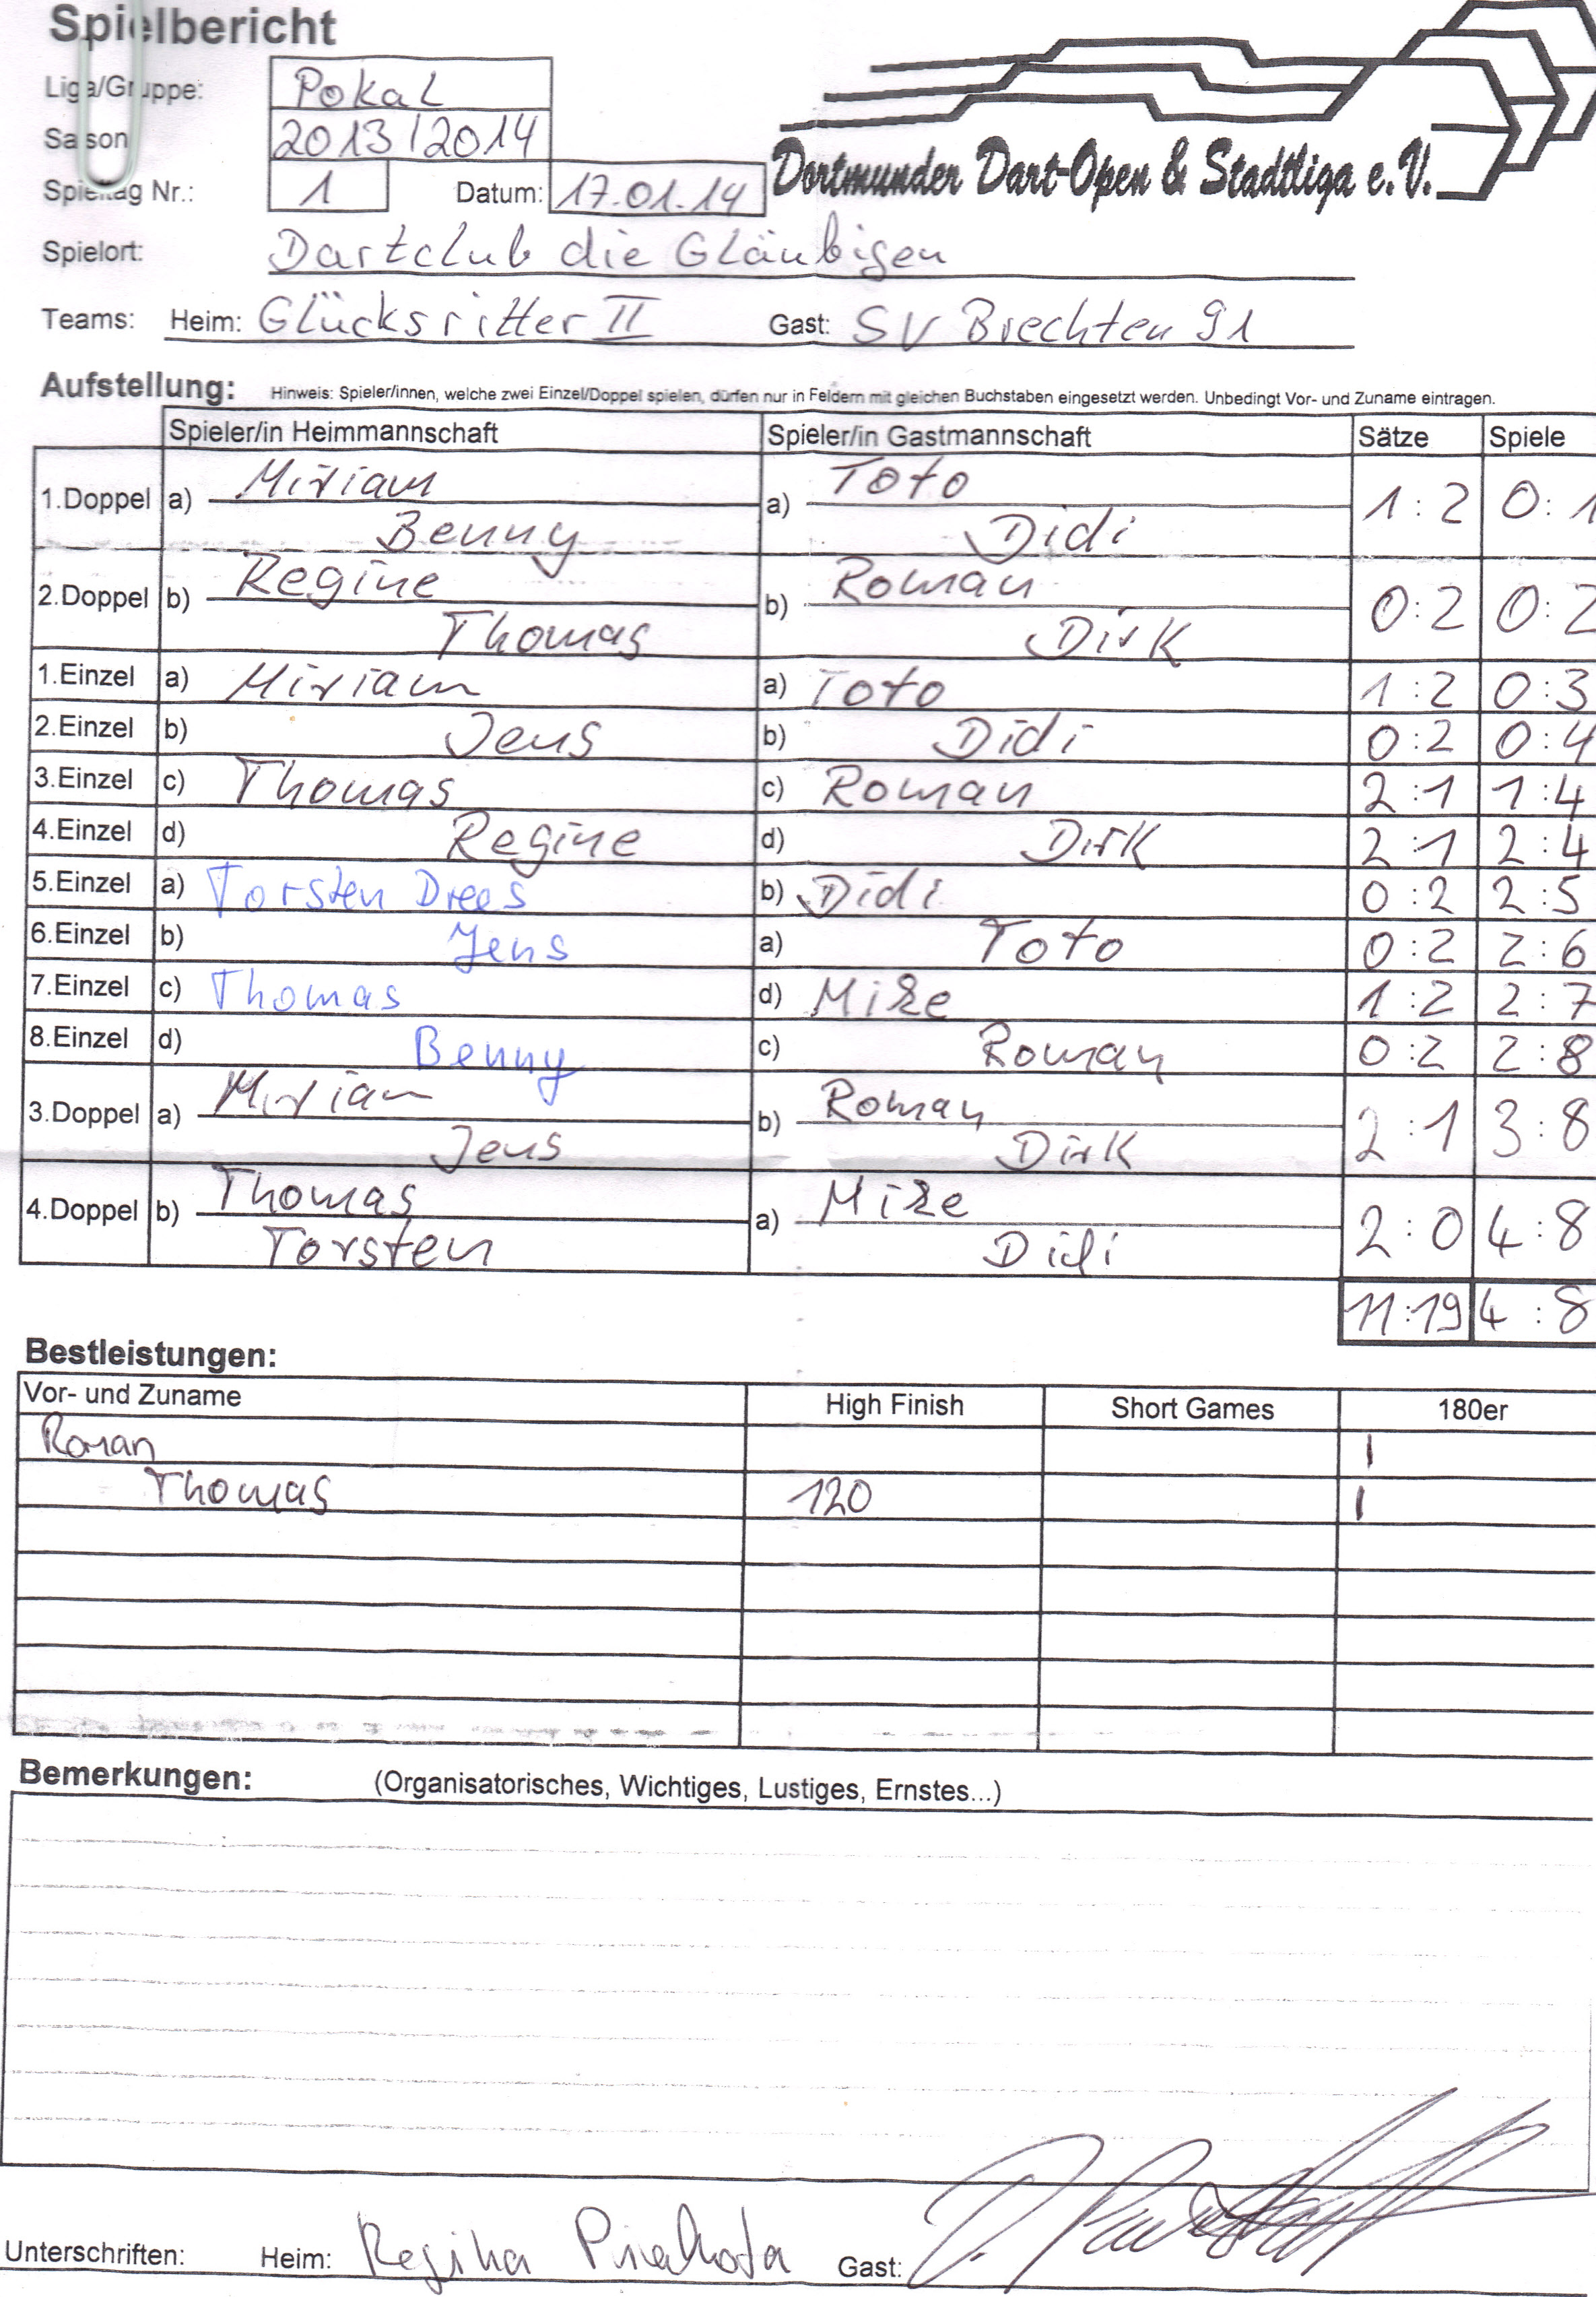 Spielbericht
Liga/Gruppe: Pokal
Saison 2013/2014
Spieltag Nr.: 1 Datum: 17.01.14
Dortmunder Dart-Open & Stadtliga e.V.
Spielort: Dartclub die Gläubigen
Teams: Heim: Glücksritter II Gast: SV Brechten 91
Aufstellung: Hinweis: Spieler/innen, welche zwei Einzel/Doppel spielen, dürfen nur in Feldern mit gleichen Buchstaben eingesetzt werden. Unbedingt Vor- und Zuname eintragen.
Spieler/in Heimmannschaft Spieler/in Gastmannschaft Sätze Spiele
1.Doppel a) Miriam Benny a) Toto Didi 1:2 0:1
2.Doppel b) Regine Thomas b) Roman Dirk 0:2 0:2
1.Einzel a) Miriam a) Toto 1:2 0:3
2.Einzel b) Jens b) Didi 0:2 0:4
3.Einzel c) Thomas c) Roman 2:1 1:4
4.Einzel d) Regine d) Dirk 2:1 2:4
5.Einzel a) Torsten Drees b) Didi 0:2 2:5
6.Einzel b) Jens a) Toto 0:2 2:6
7.Einzel c) Thomas d) Mike 1:2 2:7
8.Einzel d) Benny c) Roman 0:2 2:8
3.Doppel a) Miriam Jens b) Roman Dirk 2:1 3:8
4.Doppel b) Thomas Torsten a) Mike Didi 2:0 4:8
11:19 4:8
Bestleistungen:
Vor- und Zuname High Finish Short Games 180er
Roman I
Thomas 120 I
Bemerkungen: (Organisatorisches, Wichtiges, Lustiges, Ernstes...)
Unterschriften: Heim: Regina Gast: